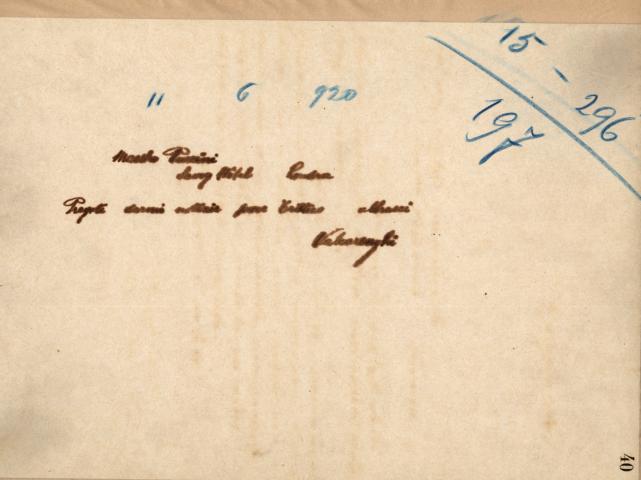 15 - 296
197
11 6 920
Maestro Puccini
Savoy Hôtel Londra
Pregoti darmi notizie prove Trittico abbracci
Valcarenghi
40